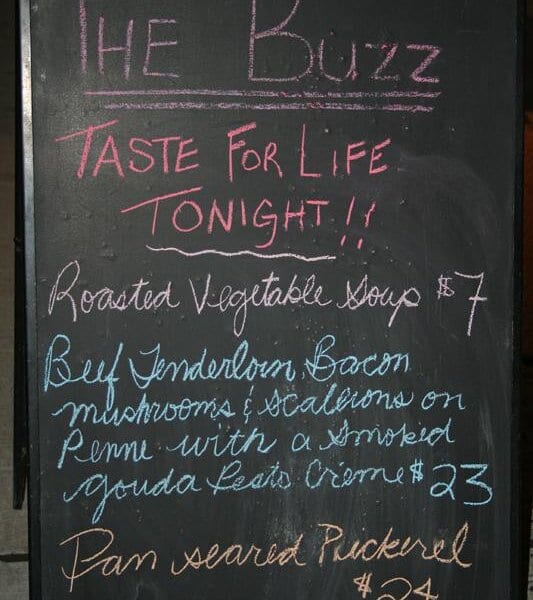 THE BUZZ
TASTE FOR LIFE
TONIGHT!!
Roasted Vegetable Soup $7
Beef Tenderloin, Bacon
mushrooms & scaleions on
Penne with a smoked
gouda Pesto Crème $23
Pan seared Pickerel
$24